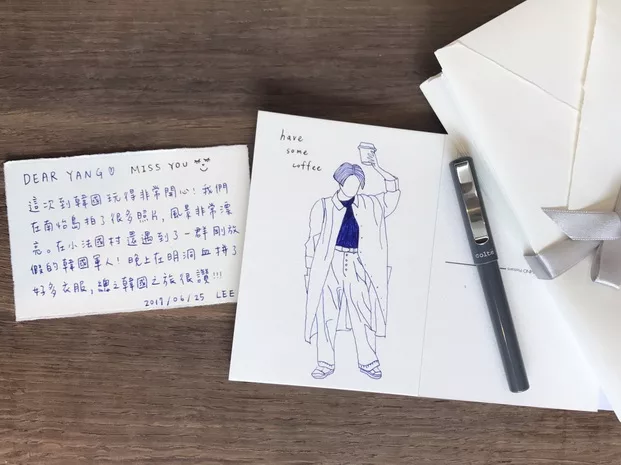 DEAR YANG♡ MISS YOU
這次到韓國玩得非常開心！我們
在南怡島拍了很多照片，風景非常漂
亮。在小法國村還遇到了一群剛放
假的韓國軍人！晚上在明洞血拼了
好多衣服，總之韓國之旅很讚!!!
2017/06/25 LEE
have
some
coffee